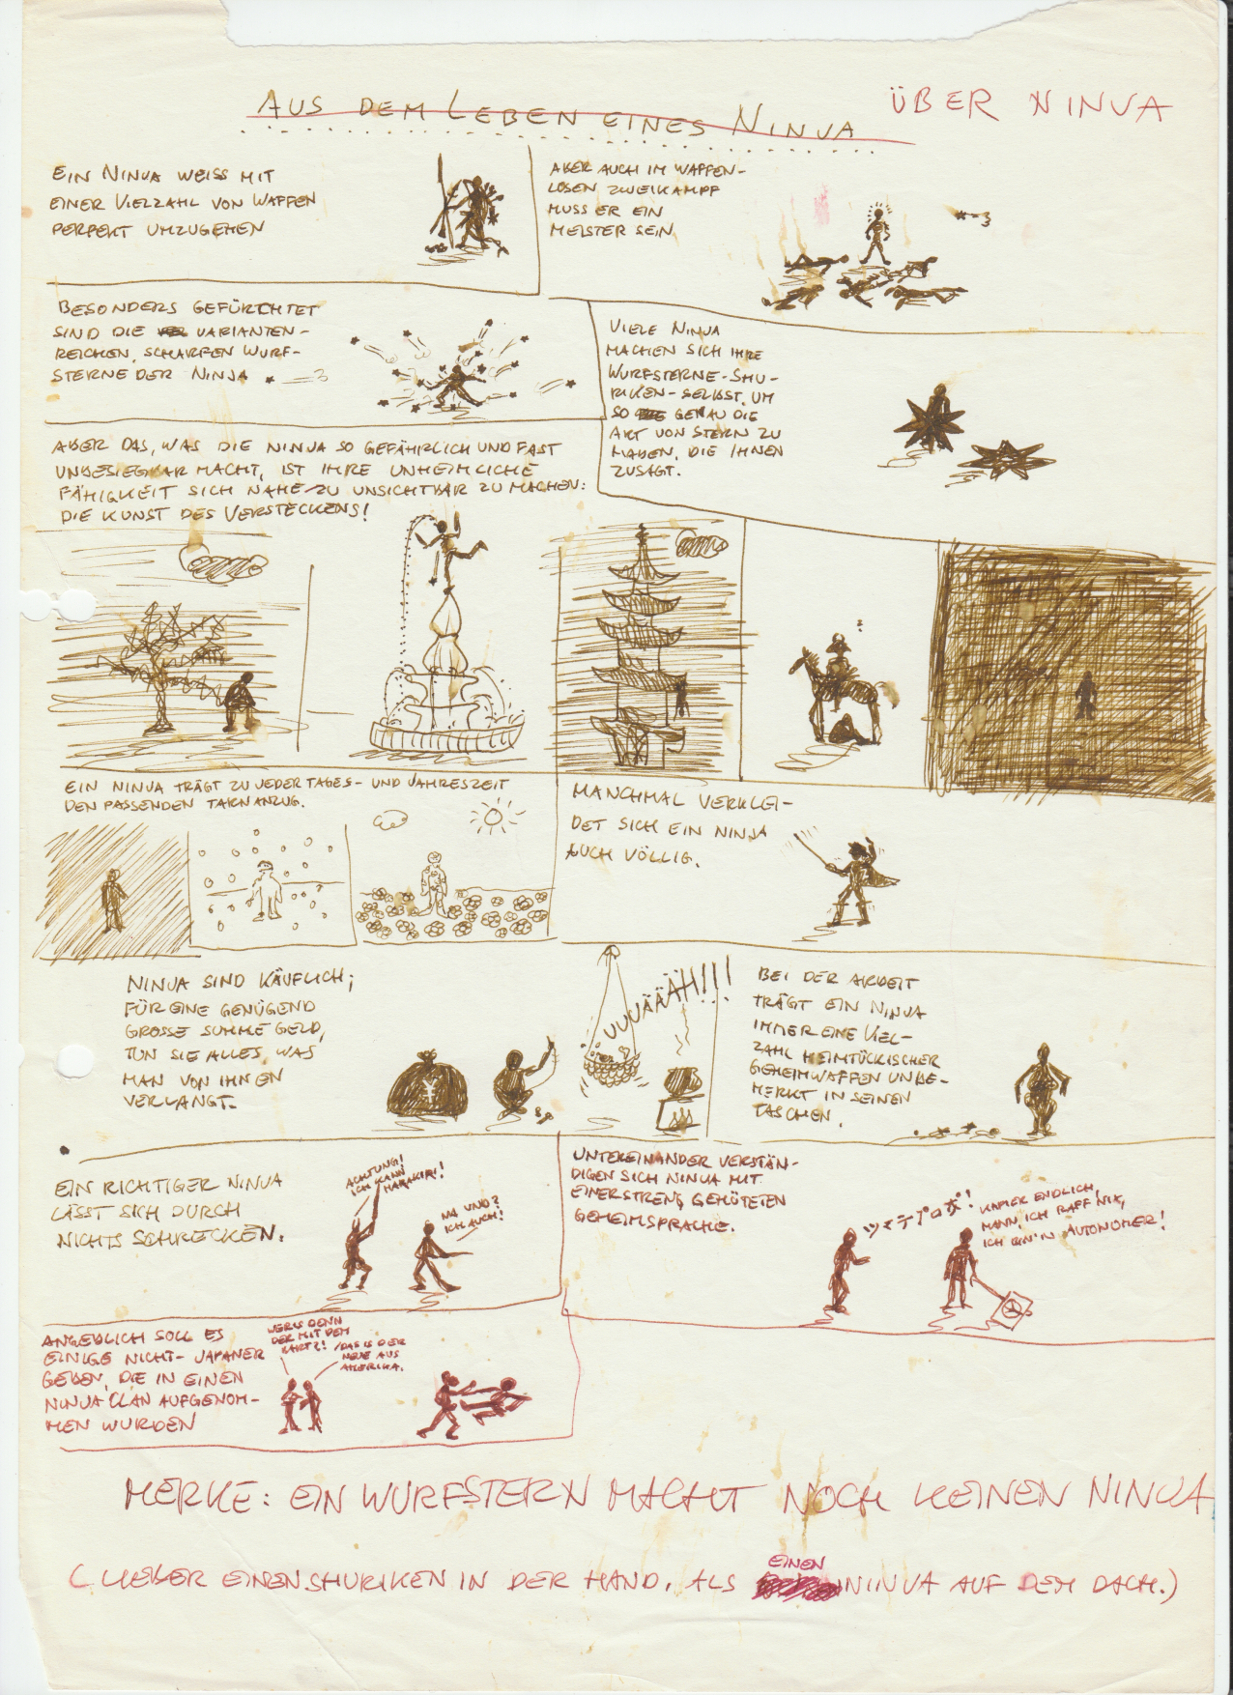 AUS DEM LEBEN EINES NINJA
ÜBER NINJA
EIN NINJA WEISS MIT
EINER VIELZAHL VON WAFFEN
PERFEKT UMZUGEHEN
ABER AUCH IM WAFFEN-
LOSEN ZWEIKAMPF
MUSS ER EIN
MEISTER SEIN
BESONDERS GEFÜRCHTET
SIND DIE VARIANTEN-
REICHEN, SCHARFEN WURF-
STERNE DER NINJA
VIELE NINJA
MACHEN SICH IHRE
WURFSTERNE-SHU-
RIKEN-SELBST, UM
SO GENAU DIE
ART VON STERN ZU
HABEN, DIE IHNEN
ZUSAGT.
ABER DAS, WAS DIE NINJA SO GEFÄHRLICH UND FAST
UNBESIEGBAR MACHT, IST IHRE UNHEIMLICHE
FÄHIGKEIT SICH NAHE ZU UNSICHTBAR ZU MACHEN:
DIE KUNST DES VERSTECKENS!
EIN NINJA TRÄGT ZU JEDER TAGES- UND JAHRESZEIT
DEN PASSENDEN TARNANZUG.
MANCHMAL VERKLEI-
DET SICH EIN NINJA
AUCH VÖLLIG.
NINJA SIND KÄUFLICH;
FÜR EINE GENÜGEND
GROSSE SUMME GELD,
TUN SIE ALLES, WAS
MAN VON IHNEN
VERLANGT.
¥
UUUÄÄÄH!!!
BEI DER ARBEIT
TRÄGT EIN NINJA
IMMER EINE VIEL-
ZAHL HEIMTÜCKISCHER
GEHEIMWAFFEN UNBE-
MERKT IN SEINEN
TASCHEN.
EIN RICHTIGER NINJA
LÄSST SICH DURCH
NICHTS SCHRECKEN.
ACHTUNG!
ICH KANN
HARAKIRI!
NA UND?
ICH AUCH!
UNTEREINANDER VERSTÄN-
DIGEN SICH NINJA MIT
EINER STRENG GEHÜTETEN
GEHEIMSPRACHE.
KAPIER ENDLICH,
MANN, ICH RAFF NIX,
ICH BIN'N AUTONOMER!
ANGEBLICH SOLL ES
EINIGE NICHT-JAPANER
GEBEN, DIE IN EINEN
NINJA CLAN AUFGENOM-
MEN WURDEN
WER IS DENN
DER MIT DEM
BART?!
DAS IS DER
NEUE AUS
AMERIKA.
MERKE: EIN WURFSTERN MACHT NOCH KEINEN NINJA
(LIEBER EINEN SHURIKEN IN DER HAND, ALS EINEN NINJA AUF DEM DACH.)